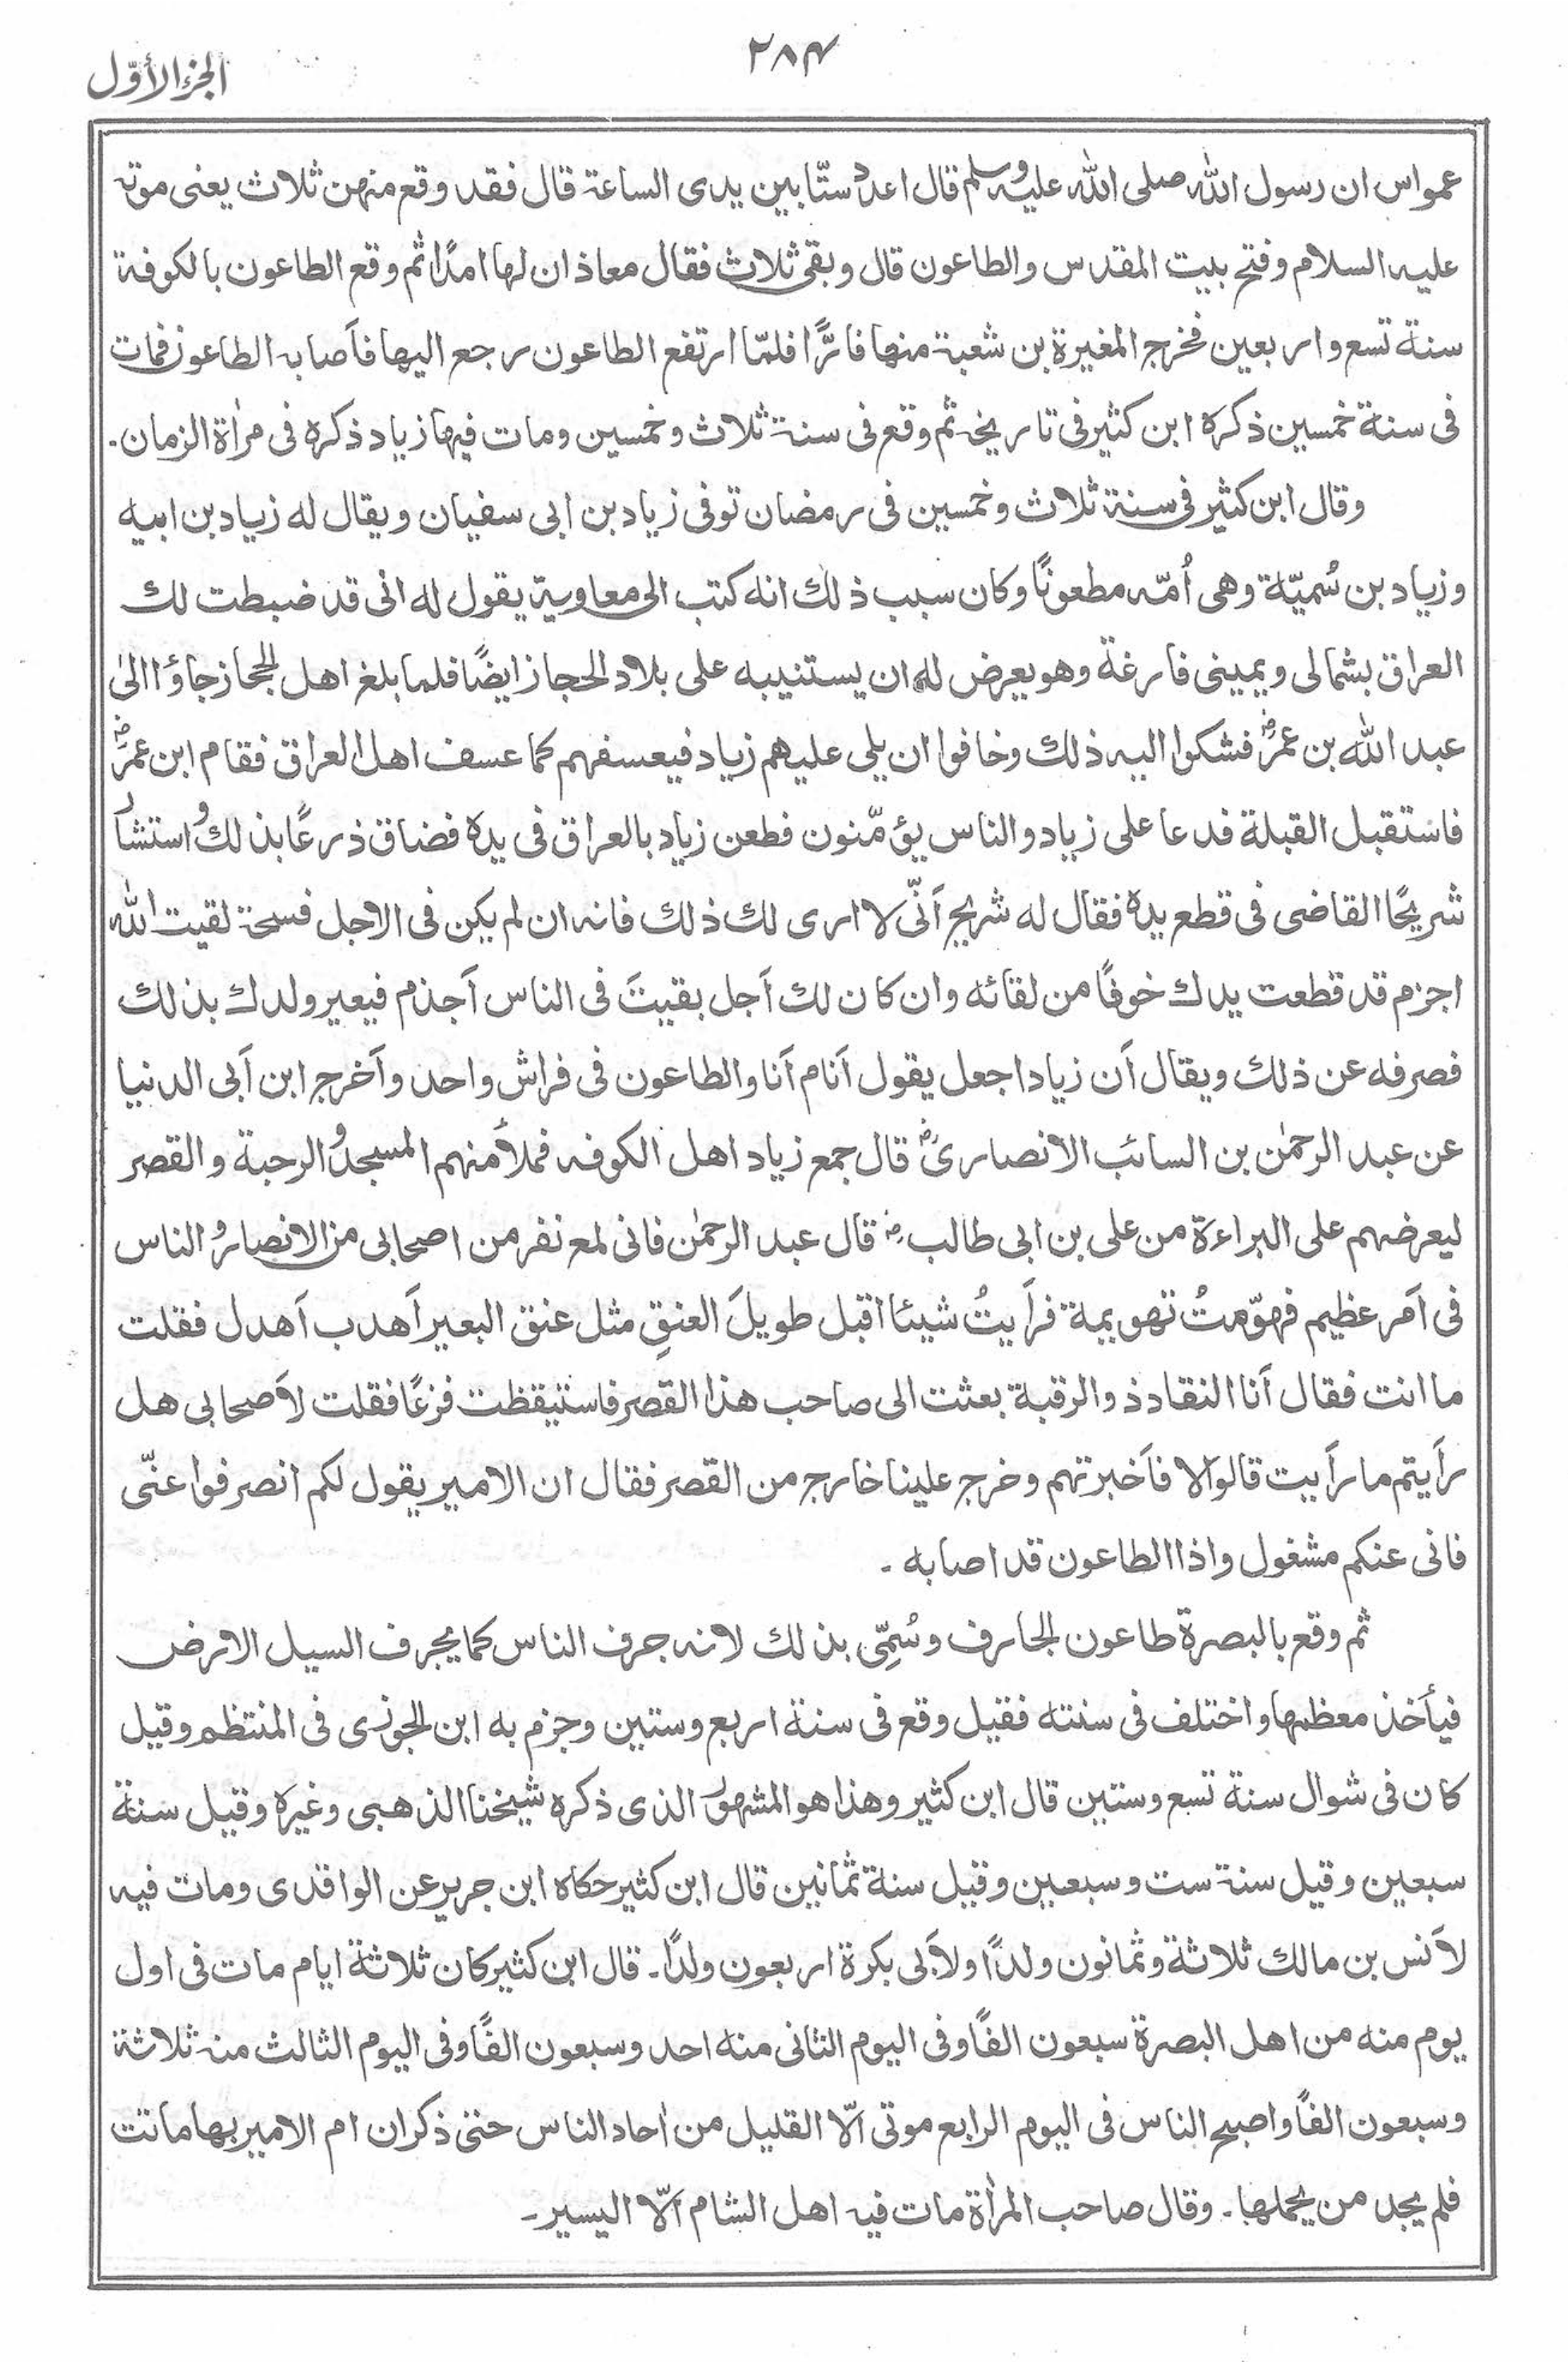 الجزء الأوّل
٢٨٤
عمواس ان رسول الله صلى الله عليه وسلم قال اعدد ستّا بين يدى الساعة قال فقد وقع منهن ثلاث يعنى موته
عليه السلام وفتح بيت المقدس والطاعون قال وبقى ثلاث فقال معاذ ان لها امدًا ثم وقع الطاعون بالكوفة
سنة تسع واربعين فخرج المغيرة بن شعبة منها فارًّا فلمّا ارتفع الطاعون رجع اليها فأصابه الطاعون فمات
فى سنة خمسين ذكره ابن كثير فى تاريخه ثم وقع فى سنة ثلاث وخمسين ومات فيها زياد ذكره فى مراٰة الزمان۔
وقال ابن كثير فى سنة ثلاث وخمسين فى رمضان توفى زياد بن ابى سفيان ويقال له زياد بن ابيه
وزياد بن سُميّة وهى اُمّه مطعونًا وكان سبب ذلك انه كتب الى معاوية يقول له انى قد ضبطت لك
العراق بشمالى ويمينى فارغة وهو يعرض له ان يستنيبه على بلاد الحجاز ايضًا فلما بلغ اهل الحجاز جاؤا الىٰ
عبد الله بن عمرؓ فشكوا اليه ذلك وخافوا ان يلى عليهم زياد فيعسفهم كما عسف اهل العراق فقام ابن عمرؓ
فاستقبل القبلة فدعا على زياد والناس يؤمّنون فطعن زياد بالعراق فى يده فضاق ذرعًا بذلك واستشار
شريحًا القاضى فى قطع يده فقال له شريح أنّى لا ارى لك ذلك فانه ان لم يكن فى الاجل فسحة لقيت الله
اجزم قد قطعت يدك خوفًا من لقائه وان كان لك أجل بقيتَ فى الناس أجذم فيعير ولدك بذلك
فصرفه عن ذلك ويقال أن زيادا جعل يقول أنام أنا والطاعون فى فراش واحد وأخرج ابن أبى الدنيا
عن عبد الرحمٰن بن السائب الانصارىؓ قال جمع زياد اهل الكوفه فملأ منهم المسجد والرحبة والقصر
ليعرضهم على البراءة من على بن ابى طالبؓ قال عبد الرحمٰن فانى لمع نفر من اصحابى من الانصار والناس
فى أمر عظيم فهوّمتُ تهويمة فرأيتُ شيئا اقبل طويلَ العنقِ مثل عنق البعير أهدب أهدل فقلت
ما انت فقال أنا النقاد ذو الرقبة بعثت الى صاحب هذا القصر فاستيقظت فزعًا فقلت لأصحابى هل
رأيتم ما رأيت قالوا لا فأخبرتهم وخرج علينا خارج من القصر فقال ان الامير يقول لكم انصرفوا عنّى
فانى عنكم مشغول واذا الطاعون قد اصابه ۔
ثم وقع بالبصرة طاعون الجارف وسُمِّى بذلك لانه جرف الناس كما يجرف السيل الارض
فيأخذ معظمها واختلف فى سنته فقيل وقع فى سنة اربع وستين وجزم به ابن الجوزى فى المنتظم وقيل
كان فى شوال سنة تسع وستين قال ابن كثير وهذا هو المشهور الذى ذكره شيخنا الذهبى وغيره وقيل سنة
سبعين وقيل سنة ست وسبعين وقيل سنة ثمانين قال ابن كثير حكاه ابن جرير عن الواقدى ومات فيه
لأنس بن مالك ثلاثة وثمانون ولدًا ولأبى بكرة اربعون ولدًا۔ قال ابن كثير كان ثلاثة ايام مات فى اول
يوم منه من اهل البصرة سبعون الفًا وفى اليوم الثانى منه احد وسبعون الفًا وفى اليوم الثالث منه ثلاثة
وسبعون الفًا واصبح الناس فى اليوم الرابع موتى الّا القليل من اٰحاد الناس حتى ذكر ان ام الامير بها ماتت
فلم يجد من يحملها۔ وقال صاحب المراٰة مات فيه اهل الشام الّا اليسير۔